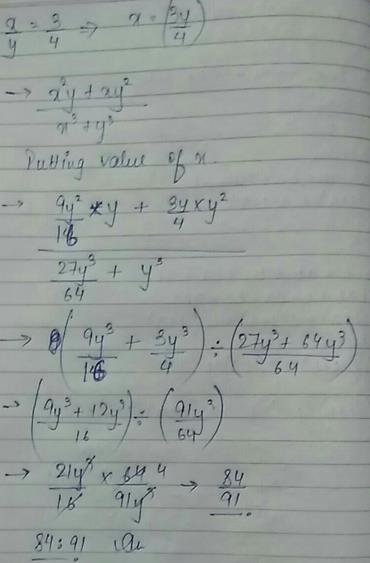 x/y = 3/4 ⇒ x = (3y/4)
→ (x²y + xy²)/(x³ + y³)
Putting value of x.
→ (9y²/16 × y + 3y/4 × y²)/(27y³/64 + y³)
→ (9y³/16 + 3y³/4) ÷ ((27y³ + 64y³)/64)
→ ((9y³ + 12y³)/16) ÷ (91y³/64)
→ 21y³/16 × 64 4/91y³ → 84/91.
84:91 Ans